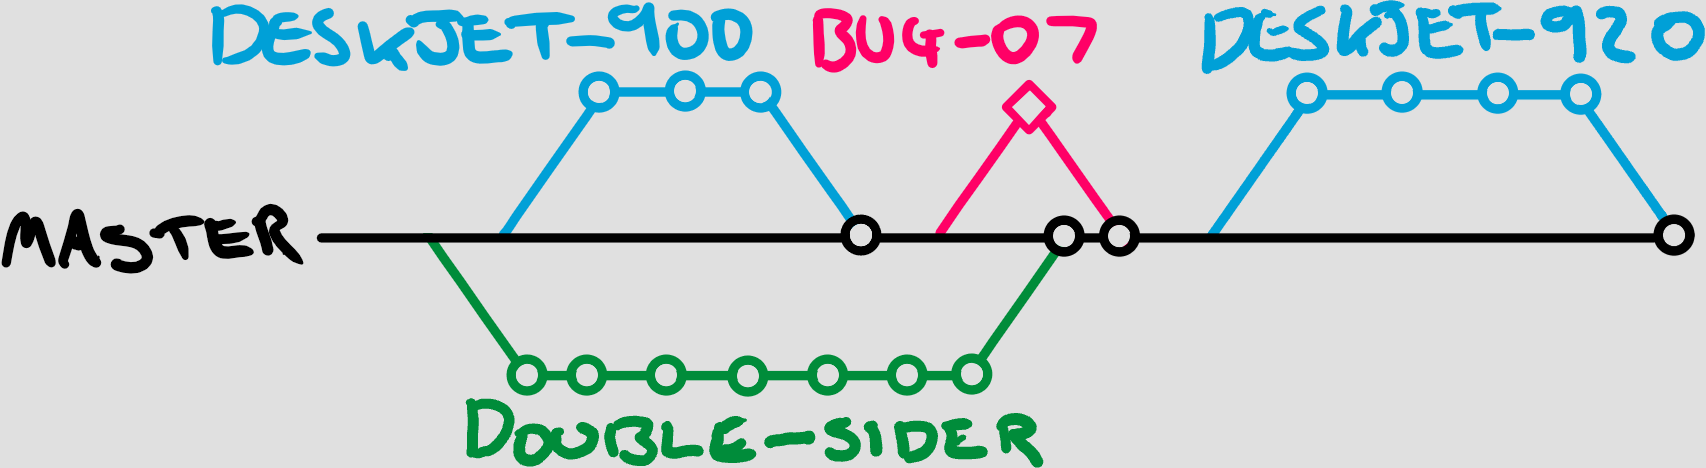 DESKJET-900 BUG-07 DESKJET-920
MASTER
DOUBLE-SIDER